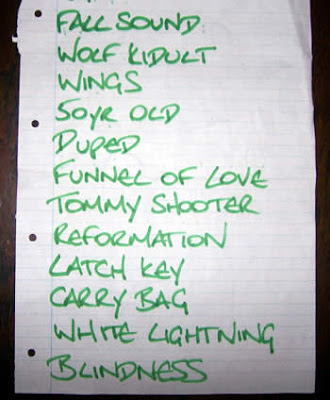 FALL SOUND
WOLF KIDULT
WINGS
50YR OLD
DUPED
FUNNEL OF LOVE
TOMMY SHOOTER
REFORMATION
LATCH KEY
CARRY BAG
WHITE LIGHTNING
BLINDNESS